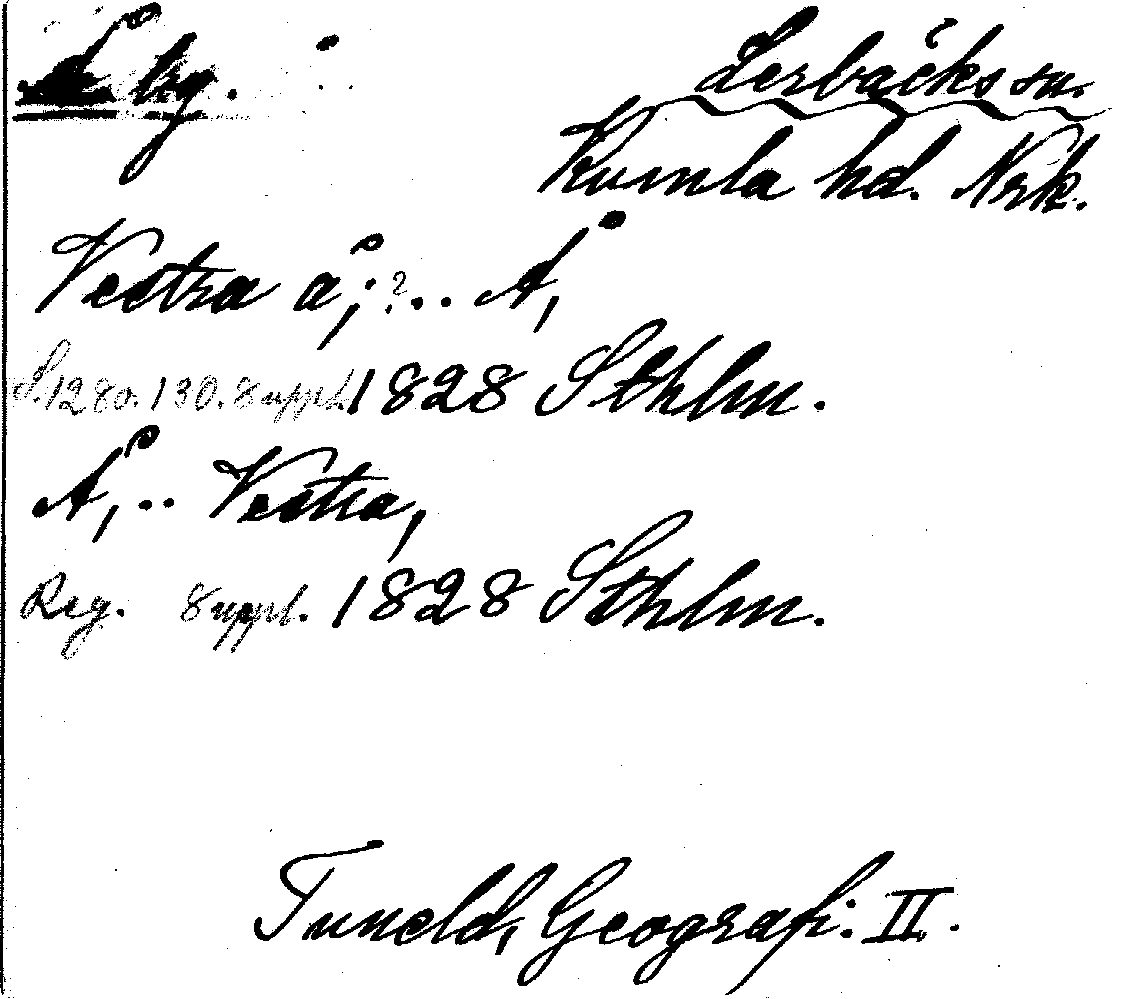 Å trg.
Lerbäcks sn.
Kumla hd. Nrk.
Vestra å; ?.. Å,
S. 128 o. 130. Suppl. 1828 Sthlm.
Å, .. Vestra,
Reg. Suppl. 1828 Sthlm.
Tuneld, Geografi. II.